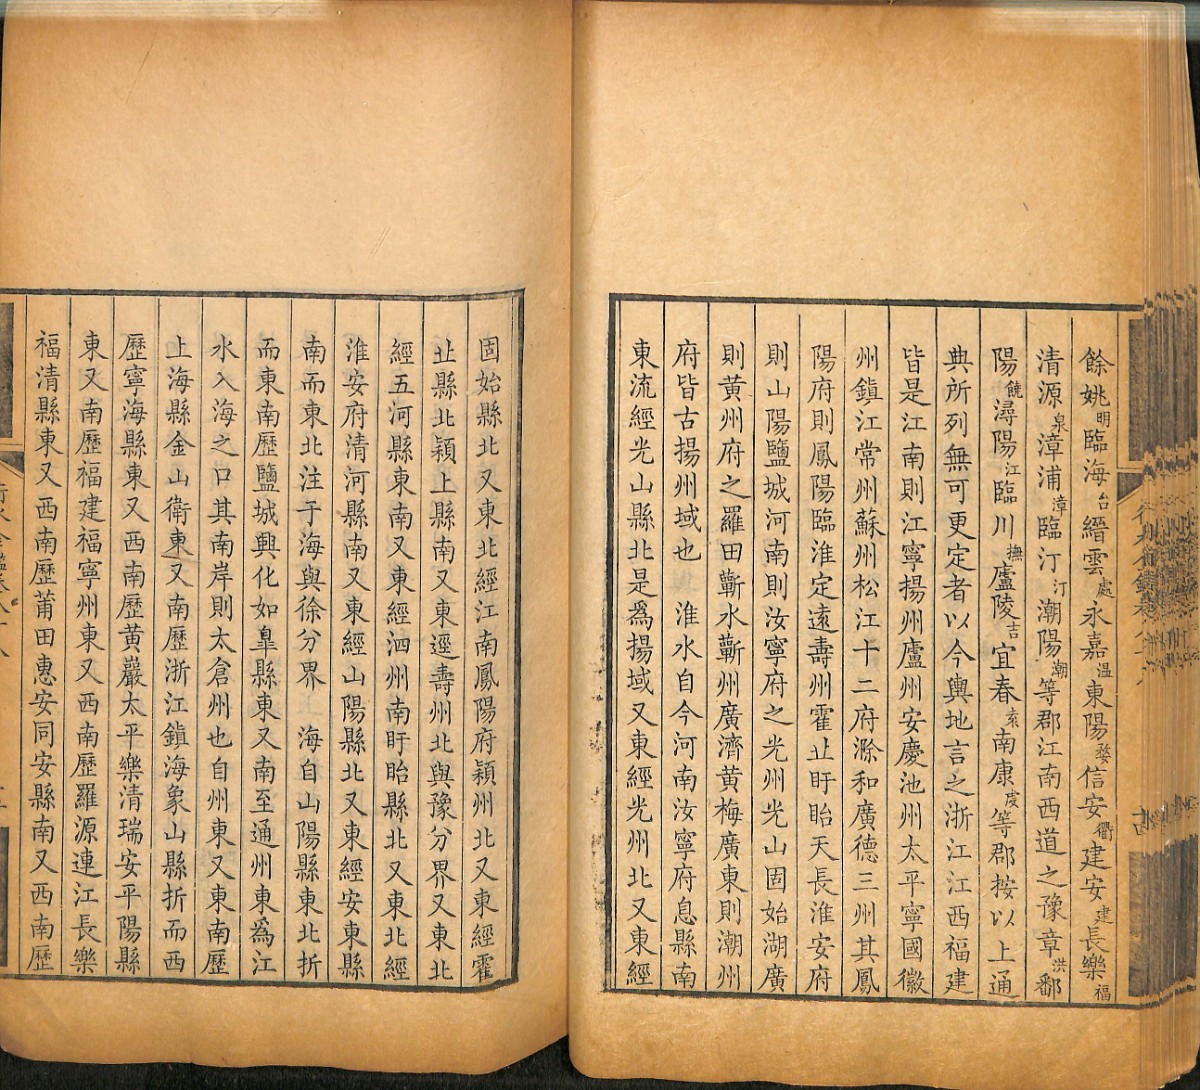 餘姚明臨海台縉雲處永嘉温東陽婺信安衢建安建長樂福
清源泉漳浦漳臨汀汀潮陽潮等郡江南西道之豫章洪鄱
陽饒潯陽江臨川撫廬陵吉宜春袁南康虔等郡按以上通
典所列無可更定者以今輿地言之浙江江西福建
皆是江南則江寧揚州廬州安慶池州太平寧國徽
州鎮江常州蘇州松江十二府滁和廣德三州其鳳
陽府則鳳陽臨淮定遠壽州霍丠盱眙天長淮安府
則山陽鹽城河南則汝寧府之光州光山固始湖廣
則黃州府之羅田蘄水蘄州廣濟黃梅廣東則潮州
府皆古揚州域也 淮水自今河南汝寧府息縣南
東流經光山縣北是爲揚域又東經光州北又東經
固始縣北又東北經江南鳳陽府潁州北又東經霍
丠縣北潁上縣南又東逕壽州北與豫分界又東北
經五河縣東南又東經泗州南盱眙縣北又東北經
淮安府清河縣南又東經山陽縣北又東經安東縣
南而東北注于海與徐分界 海自山陽縣東北折
而東南歷鹽城興化如臯縣東又南至通州東為江
水入海之口其南岸則太倉州也自州東又東南歷
上海縣金山衛東又南歷浙江鎮海象山縣折而西
歷寧海縣東又西南歷黃巖太平樂清瑞安平陽縣
東又南歷福建福寧州東又西南歷羅源連江長樂
福清縣東又西南歷莆田惠安同安縣南又西南歷